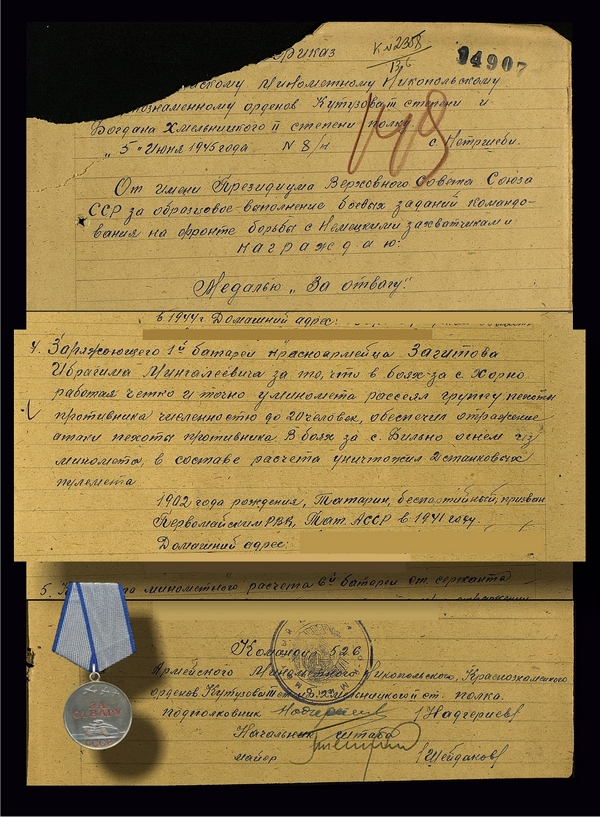 Приказ К №2358
13.6
14907
скому Минометному Никопольскому
ознаменному орденов Кутузова степени и
Богдана Хмельницкого II степени полку.
"5" Июня 1945 года N 8/н с. Нетршеби.
От имени Президиума Верховного Совета Союза
ССР за образцовое выполнение боевых заданий командо-
вания на фронте борьбы с Немецкими захватчиками
НАГРАЖДАЮ:
Медалью "За отвагу":
в 1944 г. Домашний адрес:
4. Заряжающего 1й батареи красноармейца Загитова
Ибрагима Мингалеевича за то, что в боях за с. Хорно
работая четко и точно у миномета рассеял группу пехоты
противника численностью до 20 человек, обеспечил отражение
атаки пехоты противника. В боях за с. Бильно огнем из
миномета, в составе расчета уничтожил 2 станковых
пулемета
1902 года рождения, Татарин, беспартийный, призван
Первомайским РВК, Тат. АССР в 1941 году.
Домашний адрес:
5. минометного расчета 6й батареи ст. сержанта
Командир 526
Армейского Минометного Никопольского, Краснознаменного
орденов Кутузова Хмельницкого II ст. полка.
подполковник /Надгериев/
Начальник штаба
майор /Шейдаков/
ЗА ОТВАГУ
СССР